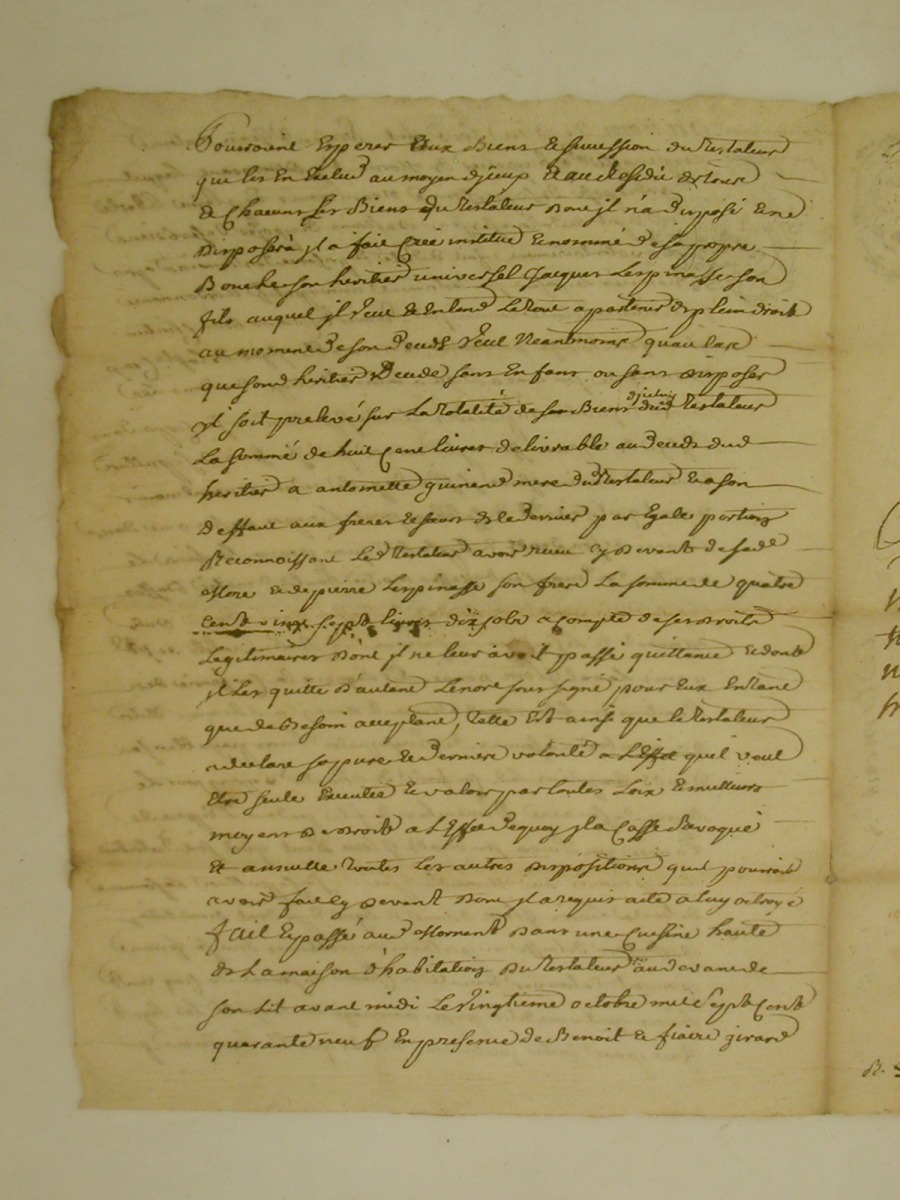 Pourroint Esperer Aux Biens & succession du Testateur
qui les En Exclud au moyen d'jceux Et au Residu de tous
& Chacuns Les Biens du Testateur dont jl n'a disposé & ne
Disposera jl a fait Créé institué & nommé de sa propre
Bouche son heritier universel Jacques Lespinasse son
fils auquel jl Veut & Entend Le tout apartenir de plein droit
au moment de son decedz Veut Neantmoins qu'au Cas
que sond heritier Decede sans Enfans ou sans disposer
jl soit prelevé sur La totalité de ses Biens dud Testateur
La sommé de huit Cent livres delivrable au decedz dud
heritier a antoinette guinend mere du Testateur & a son
Deffaut aux freres & sœurs de Ce Dernier par Egale portion
Reconnoissant Led Testateur avoir receu Cy devant de sad
Mere & de pierre Lespinasse son frere La somme de quatre
Cent vingt sept livres dix sols a compte de ses droits
Legitimaires dont jl ne leur avoit passé quittance & dont
jl Les quitte d'autant Le nore sous signé pour Eux En tant
que de Besoin acceptant, Telle Est ainsi que le Testateur
a declaré sa pure & Derniere volonté a L'Effet quel veut
Etre seule Executée & valoir par toutes Loix & meilleurs
moyens de droit a L'Effet dequoy jl a Cassé Revoqué
Et annullé Toutes Les autres dispositions quil pourroit
avoir fait Cy devant dont jl a requis acte a luy octroyé
fait & passé aud Mornent dans une Cuisine haute
de La maison d'habitation du Testateur au devant de
son lit avant midi Le Vingtieme octobre mil Sept Cent
quarante neuf En presence de Benoit & fiacre girard